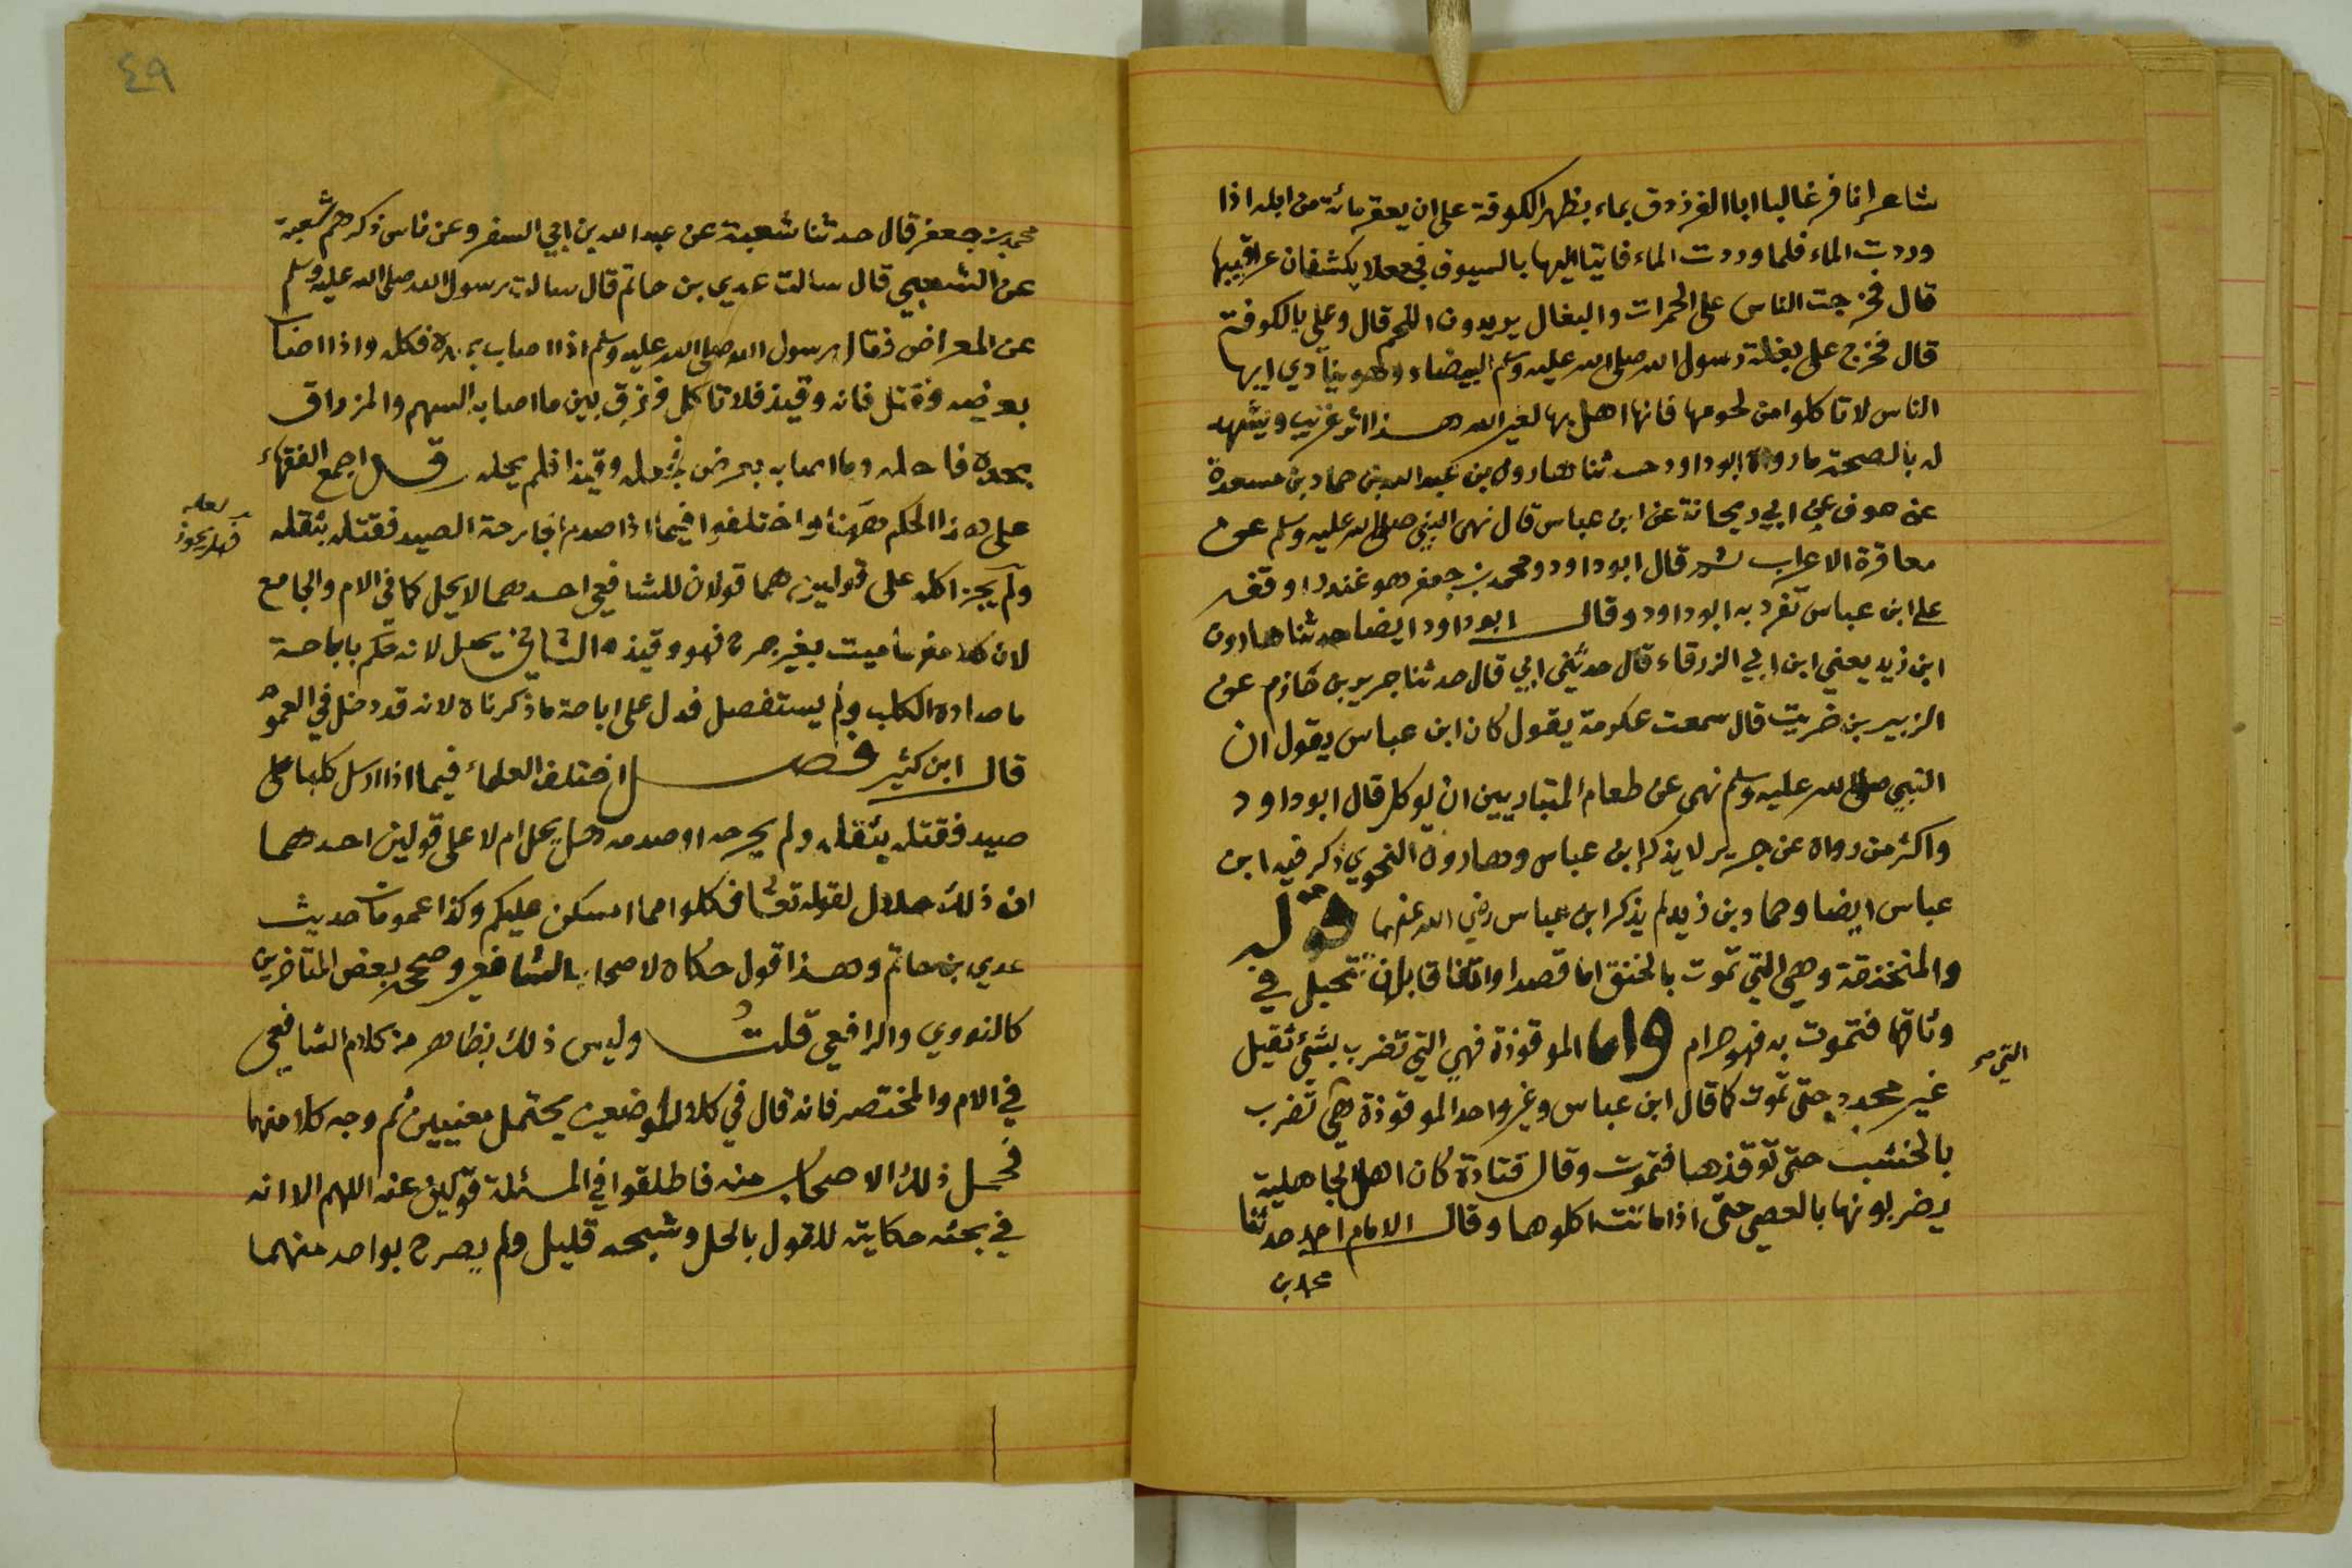 شاعرا نافر غالبا ابا الفرزدق بماء بظهر الكوفة على ان يعقر مائة من ابله اذا
وردت الماء فلما وردت الماء فاتيا اليها بالسيوف فجعلا يكشفان عراقيبها
قال فخرجت الناس على الحمرات والبغال يريدون اللحم قال وعلي بالكوفة
قال فخرج على بغلة رسول الله صلى الله عليه وسلم البيضاء وهو ينادي ايها
الناس لا تاكلوا من لحومها فانها اهل بها لغير الله هـذا اثر غريب ويشهد
له بالصحة ما رواه ابو داود حدثنا هارون بن عبد الله بن حماد بن مسعدة
عن عوف عن ابي ريحانة عن ابن عباس قال نهى النبي صلى الله عليه وسلم عن
معاقرة الاعراب ثم قال ابو داود ومحمد بن جعفر هو غندر اوقفه
على ابن عباس تفرد به ابو داود وقال ابو داود ايضا حدثنا هارون
ابن زيد يعني ابن ابي الزرقاء قال حدثني ابي قال حدثنا جرير بن حازم عن
الزبير بن خريت قال سمعت عكرمة يقول كان ابن عباس يقول ان
النبي صلى الله عليه وسلم نهى عن طعام المتباريين ان يوكل قال ابو داود
واكثر من رواه عن جرير لا يذكر ابن عباس وهارون النحوي ذكر فيه ابن
عباس ايضا وحماد بن زيد لم يذكر ابن عباس رضي الله عنهما قوله
والمنخنقة وهي التي تموت بالخنق اما قصدا واتفاقا بان تتخبل في
وثاقها فتموت به فهو حرام واما الموقوذة فهي التي تضرب بشيئ ثقيل
التي
غير محدد حتى تموت كما قال ابن عباس وغير واحد الموقوذة هي تضرب
بالخشب حتى توقذها فتموت وقال قتادة كان اهل الجاهلية
يضربونها بالعصي حتى اذا ماتت اكلوها وقال الامام احمد حدثنا
محمد بن
٤٩
محمد بن جعفر قال حدثنا شعبة عن عبد الله بن ابي السفر وعن ناس ذكرهم شعبة
عن الشعبي قال سالت عدي بن حاتم قال سالت رسول الله صلى الله عليه وسلم
عن المعراض فقال رسول الله صلى الله عليه وسلم اذا اصاب بحده فكله واذا اصاب
بعرضه فقتل فانه وقيذ فلا تاكل ففرق بين ما اصابه السهم والمزراق
بحده فاحله وما اصاب بعرض فجعله وقيذا فلم يحله وقد اجمع الفقهاء
على هذا الحكم ههنا واختلفوا فيما اذا صدم الجارحة الصيد فقتله بثقله
لعله
فهل يجوز
ولم يجز اكله على قولين هما قولان للشافعي احدهما لا يحل كما في الام والجامع
لان كلا منهما ميت بغير جرح فهو وقيذ والثاني يحل لانه حكم باباحة
ما صاده الكلب ولم يستفصل فدل على اباحة ما ذكرناه لانه قد دخل في العموم
قال ابن كثير فصــل اختلف العلماء فيما اذا ارسل كلبا على
صيد فقتله بثقله ولم يجرحه او صدمه هل يحل ام لا على قولين احدهما
ان ذلك حلال لقوله تعالى فكلوا مما امسكن عليكم وكذا عمومات حديث
عدي بن حاتم وهـذا قول حكاه الاصحاب الشافعي وصححه بعض المتاخرين
كالنووي والرافعي قلت وليس ذلك بظاهر من كلام الشافعي
في الام والمختصر فانه قال في كلا الموضعين يحتمل معنيين ثم وجه كلا منهما
فحمل ذلك الاصحاب منه فاطلقوا في المسئلة قولين عنه اللهم الا انه
في بحثه حكايته للقول بالحل وشحه قليل ولم يصرح بواحد منهما